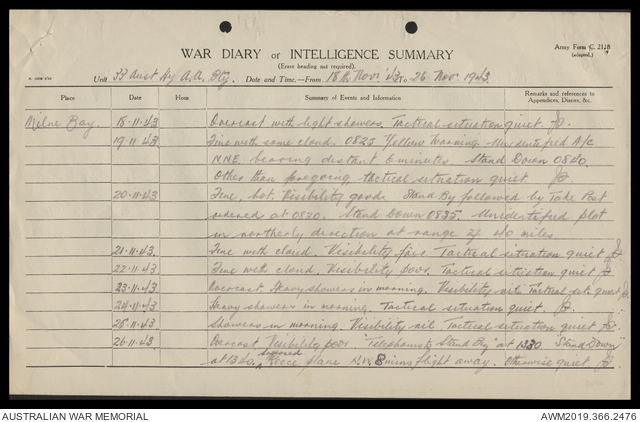 WAR DIARY or INTELLIGENCE SUMMARY
(Erase heading not required).
Army Form C. 2118
(adapted.)
Unit 33 Aust Hy A.A. Bty. Date and Time.—From 18th Nov '43 to 26 Nov 1943
Place Date Hour Summary of Events and Information Remarks and references to Appendices, Diaries, &c.
Milne Bay. 18.11.43 Overcast with light showers. Tactical situation quiet.
19.11.43 Fine with some cloud. 0825 Yellow Warning. Unidentified A/c
N.N.E. bearing distant 6 minutes. Stand Down 0840.
Other than foregoing, tactical situation quiet.
20.11.43 Fine, hot. Visibility good. Stand By followed by Take Post
ordered at 0820. Stand Down 0835. Unidentified plot
in northerly direction at range of 48 miles
21.11.43 Fine with cloud. Visibility fair. Tactical situation quiet
22.11.43 Fine with cloud. Visibility poor. Tactical situation quiet
23.11.43 Overcast. Heavy showers in morning. Visibility nil. Tactical sit. quiet
24.11.43 Heavy showers in morning. Tactical situation quiet.
25.11.43 Showers in morning. Visibility nil. Tactical situation quiet
26.11.43 Overcast Visibility poor. Telephoned "Stand By" at 1330 "Stand Down"
at 1340. Suspected Recce plane N.W. 8 mins flight away. Otherwise quiet.
AUSTRALIAN WAR MEMORIAL AWM2019.366.2476